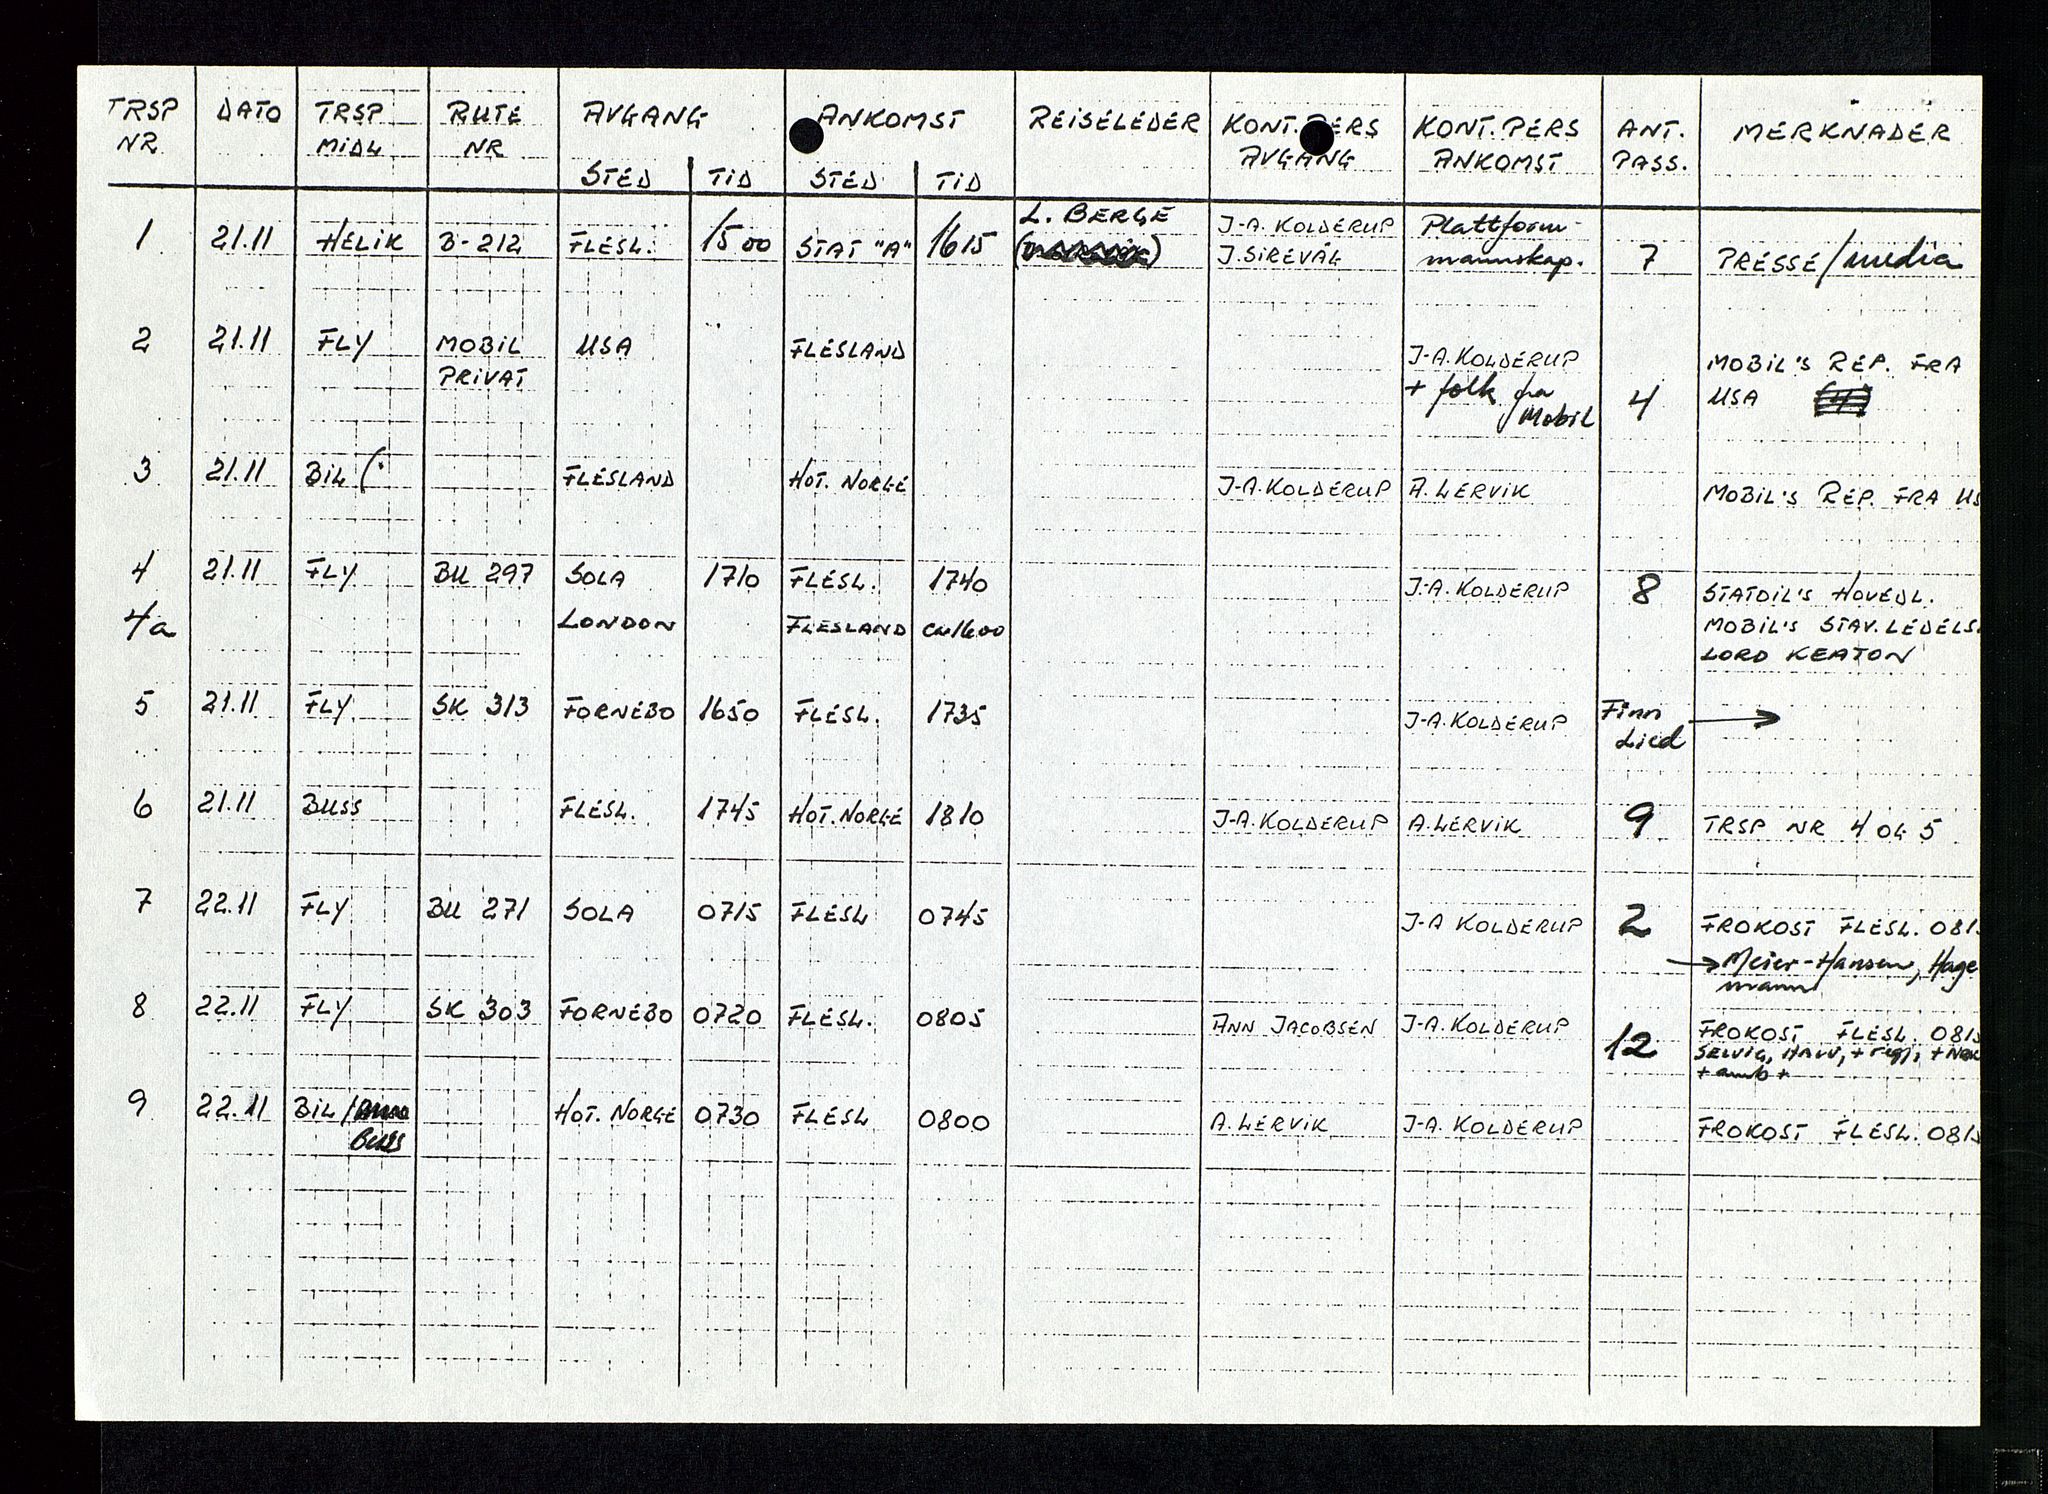 TRSP NR DATO TRSP MIDL RUTE NR AVGANG ANKOMST REISELEDER KONT.PERS AVGANG KONT.PERS ANKOMST ANT. PASS. MERKNADER
STED TID STED TID
1 21.11 HELIK B-212 FLESL. 1500 STAT "A" 1615 L. BERGE J-A. KOLDERUP Plattform-
J. SIREVÅG mannskap. 7 PRESSE/media
2 21.11 FLY MOBIL USA FLESLAND J-A. KOLDERUP MOBIL'S REP. FRA
PRIVAT + folk fra 4 USA
Mobil
3 21.11 BIL FLESLAND HOT. NORGE J-A. KOLDERUP A. LERVIK MOBIL'S REP. FRA US
4 21.11 FLY BU 297 SOLA 1710 FLESL. 1740 J.-A. KOLDERUP 8 STATOIL'S HOVEDL.
4a LONDON FLESLAND ca 16.00 MOBIL'S STAV. LEDELS.
LORD KEATON
5 21.11 FLY SK 313 FORNEBO 1650 FLESL. 1735 J-A. KOLDERUP Finn
Lied
6 21.11 BUSS FLESL. 1745 HOT. NORGE 1810 J-A. KOLDERUP A. LERVIK 9 TRSP NR 4 OG 5
7 22.11 FLY BU 271 SOLA 0715 FLESL 0745 J-A KOLDERUP 2 FROKOST FLESL. 081
Meier-Hansen, Hage
mann
8 22.11 FLY SK 303 FORNEBO 0720 FLESL. 0805 ANN JACOBSEN J-A. KOLDERUP 12 FROKOST FLESL. 081
SELVIG, + NRK
+ amb +
9 22.11 BIL/ HOT. NORGE 0730 FLESL 0800 A. LERVIK J-A. KOLDERUP FROKOST FLESL. 081
Buss